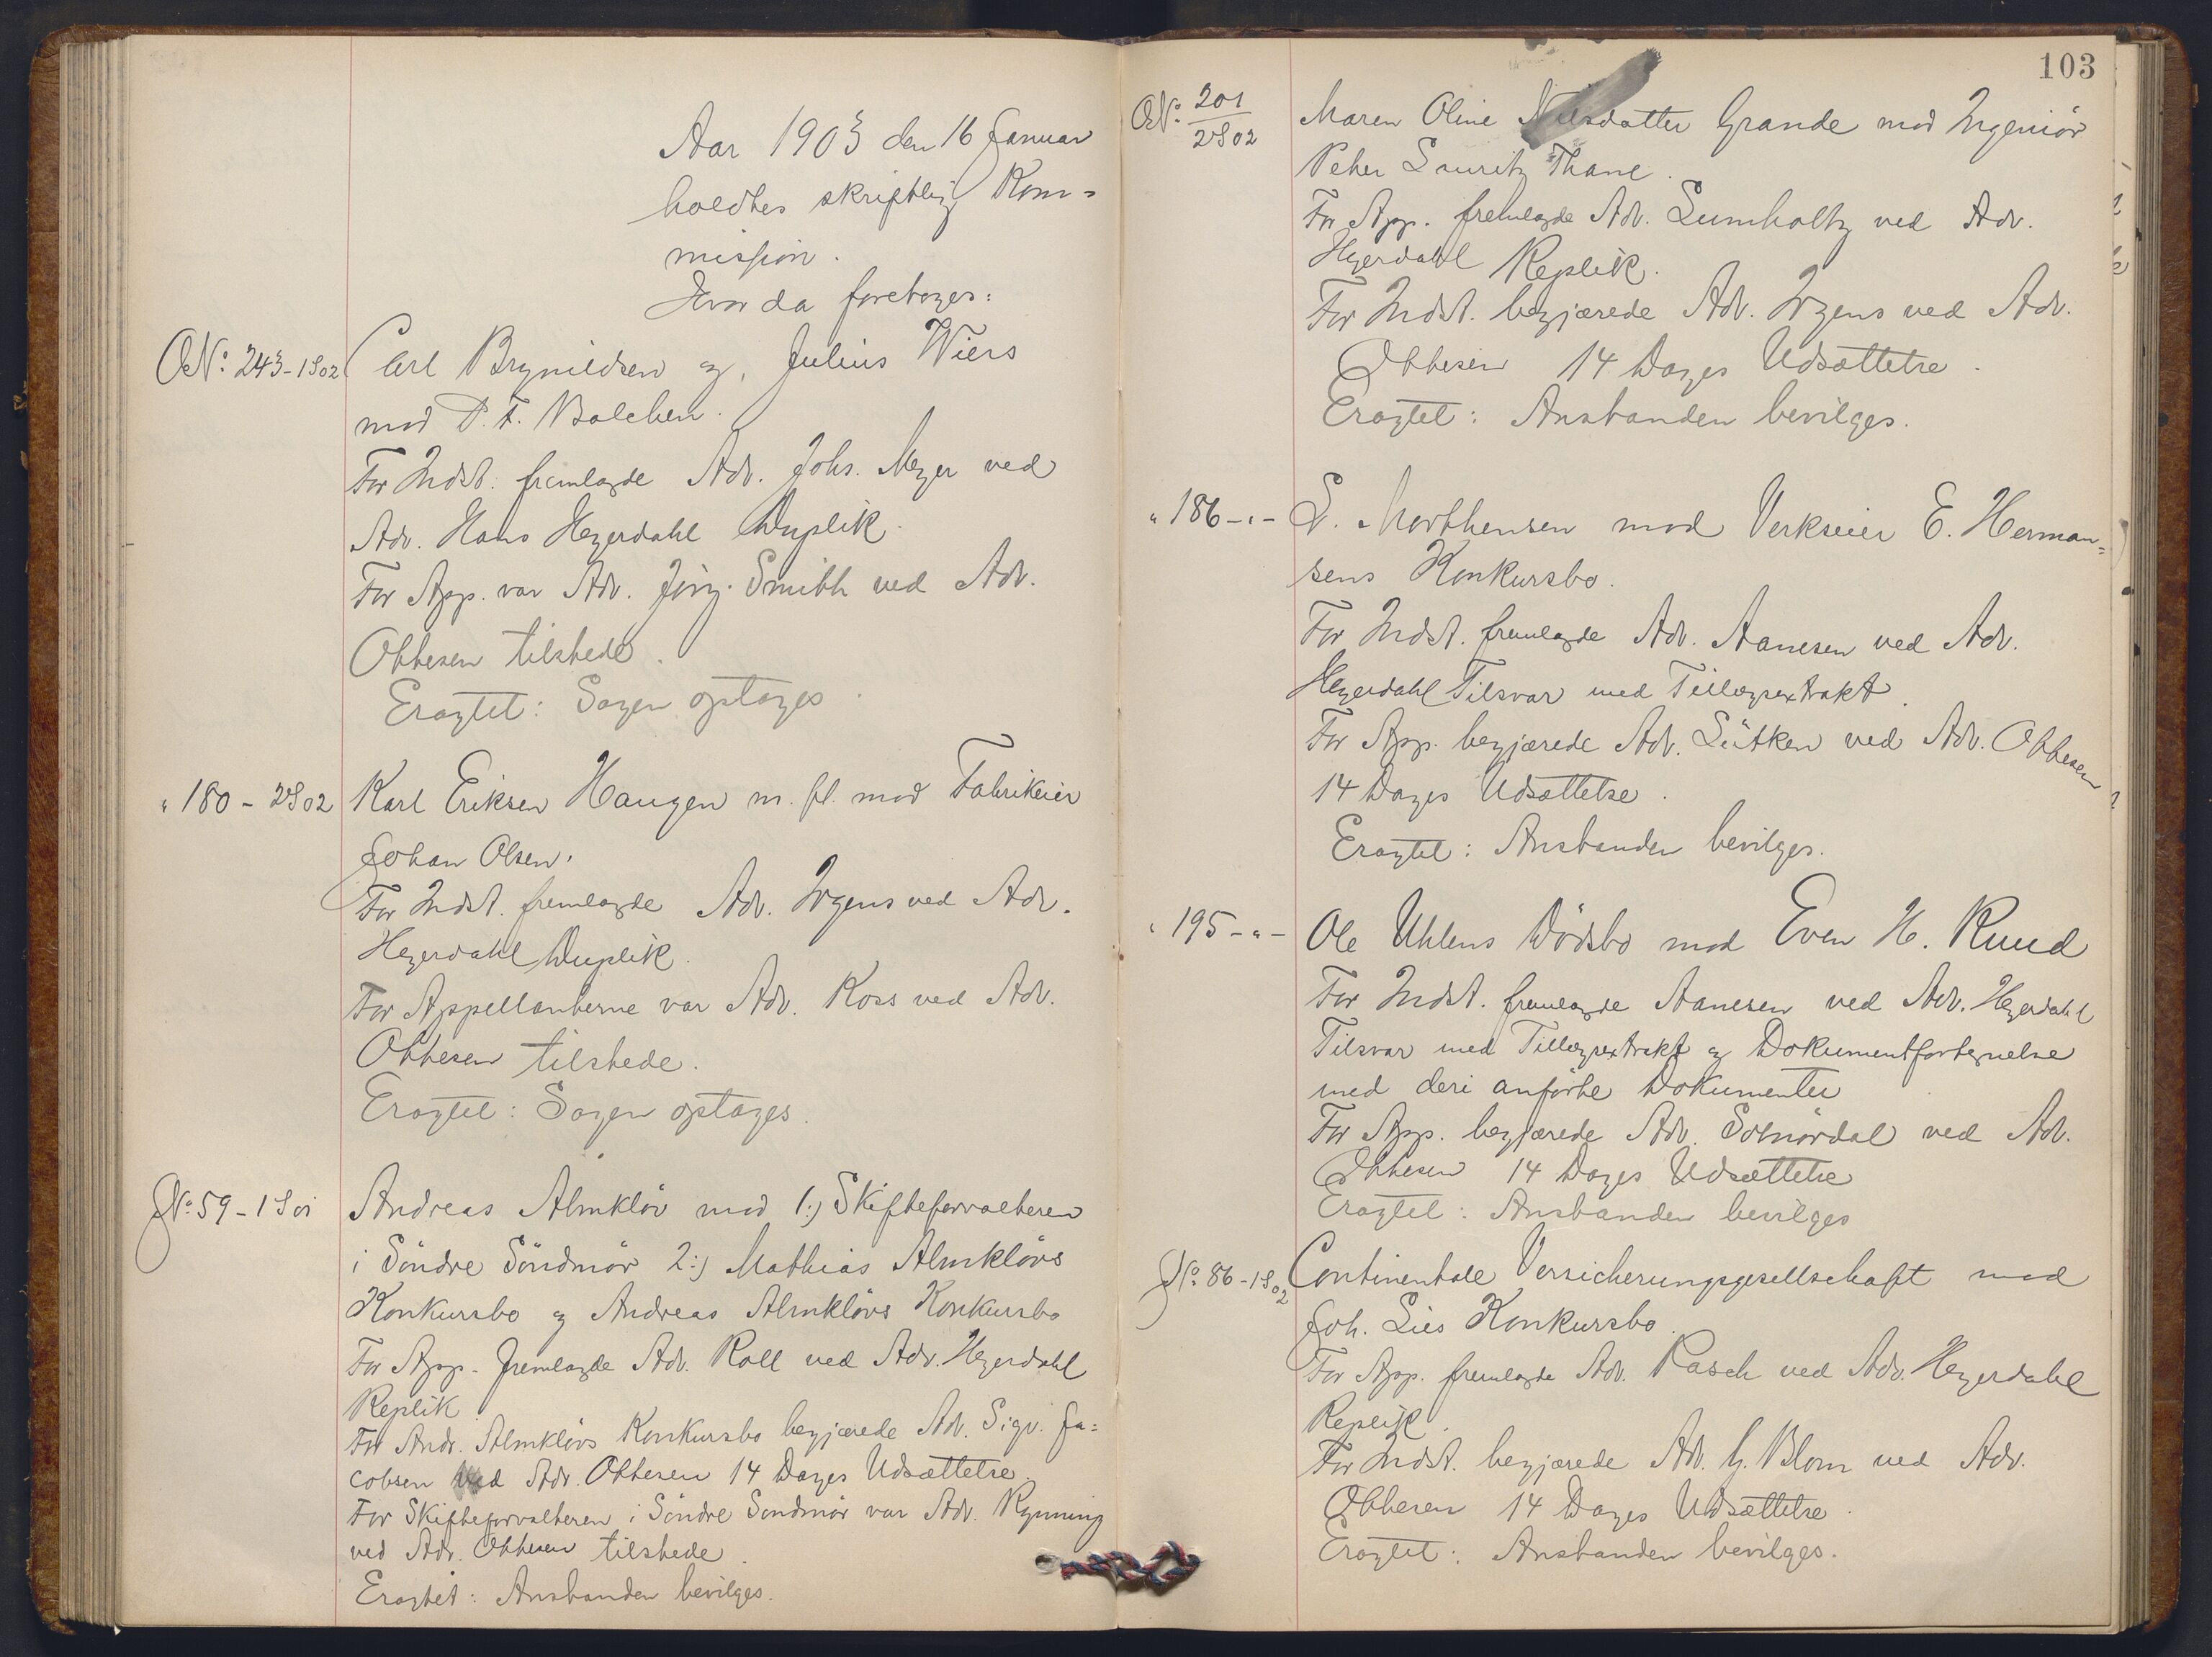 Aar 1903 den 16 Januar
holdtes skriftlig Kom=
mission.
Hvor da foretoges:
O№: 243-1S02 Carl Brynildsen og, Julius Wiers
mod P. F. Balchen.
For Indst. fremlagde Adv. Johs. Meyer ved
Adv. Hans Heyerdahl Duplik.
For App. var Adv. Jörg. Smith ved Adv.
Obbesen tilstede.
Eragtet: Sagen optages.
" 180 - 2S02 Karl Eriksen Haugen m. fl. mod Fabrikeier
Johan Olsen.
For Indst. fremlagde Adv. Irgens ved Adv.
Heyerdahl Duplik.
For Appellanterne var Adv. Koss ved Adv.
Obbesen tilstede.
Eragtet: Sagen optages.
J№: 59-1S01 Andreas Almklöv mod 1:) Skifteforvalteren
i Söndre Söndmör 2:) Mathias Almklövs
Konkursbo og Andreas Almklövs Konkursbo
For App. fremlagde Adv. Roll ved Adv. Heyerdahl
Replik.
For Andr. Almklövs Konkursbo begjærede Adv. Sigv. Ja=
cobsen ved Adv. Obbesen 14 Dages Udsættelse.
For Skifteforvalteren i Söndre Söndmör var Adv. Rynning
ved Adv. Obbesen tilstede.
Eragtet: Anstanden bevilges.
103
O№: 201/2S02 Maren Oline Nilsdatter Grande mod Ingeniör
Peter Lauritz Thane.
For App. fremlagde Adv. Lumholtz ved Adv.
Heyerdahl Replik.
For Indst. begjærede Adv. Irgens ved Adv.
Obbesen 14 Dages Udsættelse.
Eragtet: Anstanden bevilges.
" 186-"- L. Morthensen mod Verkseier E. Herman=
sens Konkursbo.
For Indst. fremlagde Adv. Aanesen ved Adv.
Heyerdahl Tilsvar med Tillægsextrakt.
For App. begjærede Adv. Lütken ved Adv. Obbesen
14 Dages Udsættelse.
Eragtet: Anstanden bevilges.
" 195-"- Ole Uhlens Dödsbo mod Even H. Ruud
For Indst. fremlagde Aanesen ved Adv. Heyerdahl
Tilsvar med Tillægsextrakt og Dokumentfortegnelse
med deri anförte Dokumenter
For App. begjærede Adv. Solnördal ved Adv.
Obbesen 14 Dages Udsættelse
Eragtet: Anstanden bevilges
J№: 86-1S02 Continentale Versicherungsgesellschaft mod
Joh. Lies Konkursbo.
For App. fremlagde Adv. Rasch ved Adv. Heyerdahl
Replik.
For Indst. begjærede Adv. G. Blom ved Adv.
Obbesen 14 Dages Udsættelse.
Eragtet: Anstanden bevilges.